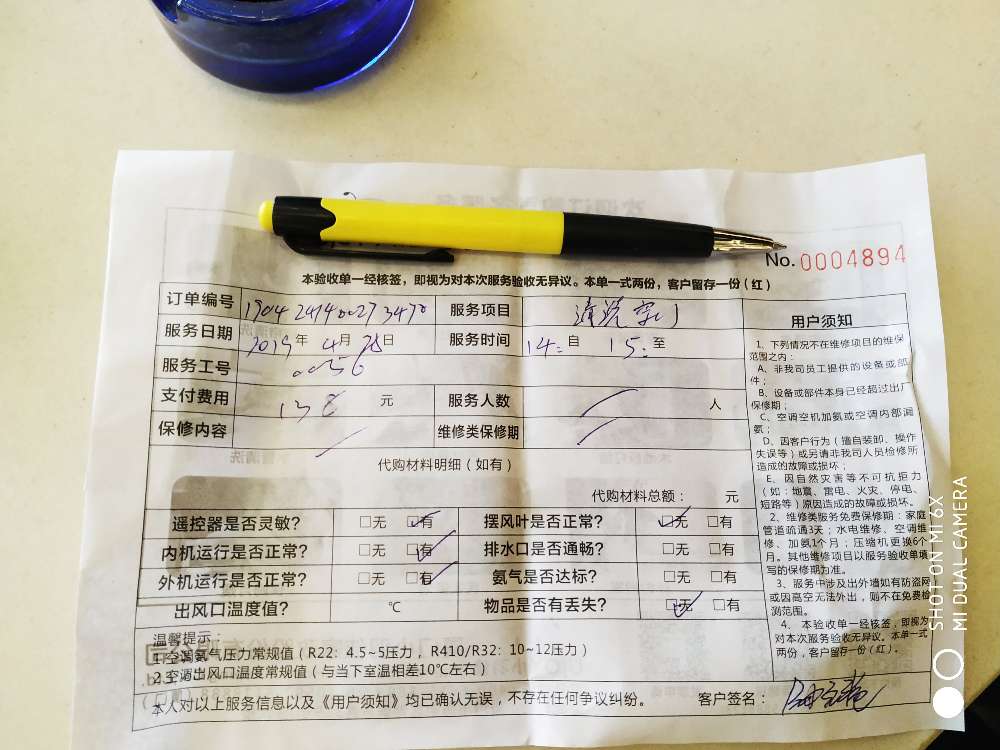 No.0004894
本验收单一经核签，即视为对本次服务验收无异议。本单一式两份，客户留存一份（红）
订单编号 服务项目 清洗
服务日期 2019年4月28日 服务时间 14:自 15:至
服务工号 0056
支付费用 138 元 服务人数 人
保修内容 维修类保修期
代购材料明细（如有）
代购材料总额： 元
遥控器是否灵敏？ □无 □有 摆风叶是否正常？ □无 □有
内机运行是否正常？ □无 □有 排水口是否通畅？ □无 □有
外机运行是否正常？ □无 □有 氨气是否达标？ □无 □有
出风口温度值？ ℃ 物品是否有丢失？ □无 □有
温馨提示：
1.空调氨气压力常规值（R22：4.5~5压力，R410/R32：10~12压力）
2.空调出风口温度常规值（与当下室温相差10℃左右）
本人对以上服务信息以及《用户须知》均已确认无误，不存在任何争议纠纷。 客户签名：
用户须知
1、下列情况不在维修项目的维保
范围之内：
A、非我司员工提供的设备或部
件；
B、设备或部件本身已经超过出厂
保修期；
C、空调空机加氨或空调内部漏
氨；
D、因客户行为（擅自装卸、操作
失误等）或另请非我司人员检修所
造成的故障或损坏；
E、因自然灾害等不可抗拒力
（如：地震、雷电、火灾、停电、
短路等）原因造成的故障或损坏。
2、维修类服务免费保修期：家庭
管道疏通3天；水电维修、空调维
修、加氨1个月；压缩机更换6个
月。其他维修项目以服务验收单填
写的保修期为准。
3、服务中涉及出外墙如有防盗网
或因高空无法外出，则不在免费检
测范围。
4、本验收单一经核签，即视为
对本次服务验收无异议。本单一式
两份，客户留存一份（红）。
SHOT ON MI 6X
MI DUAL CAMERA